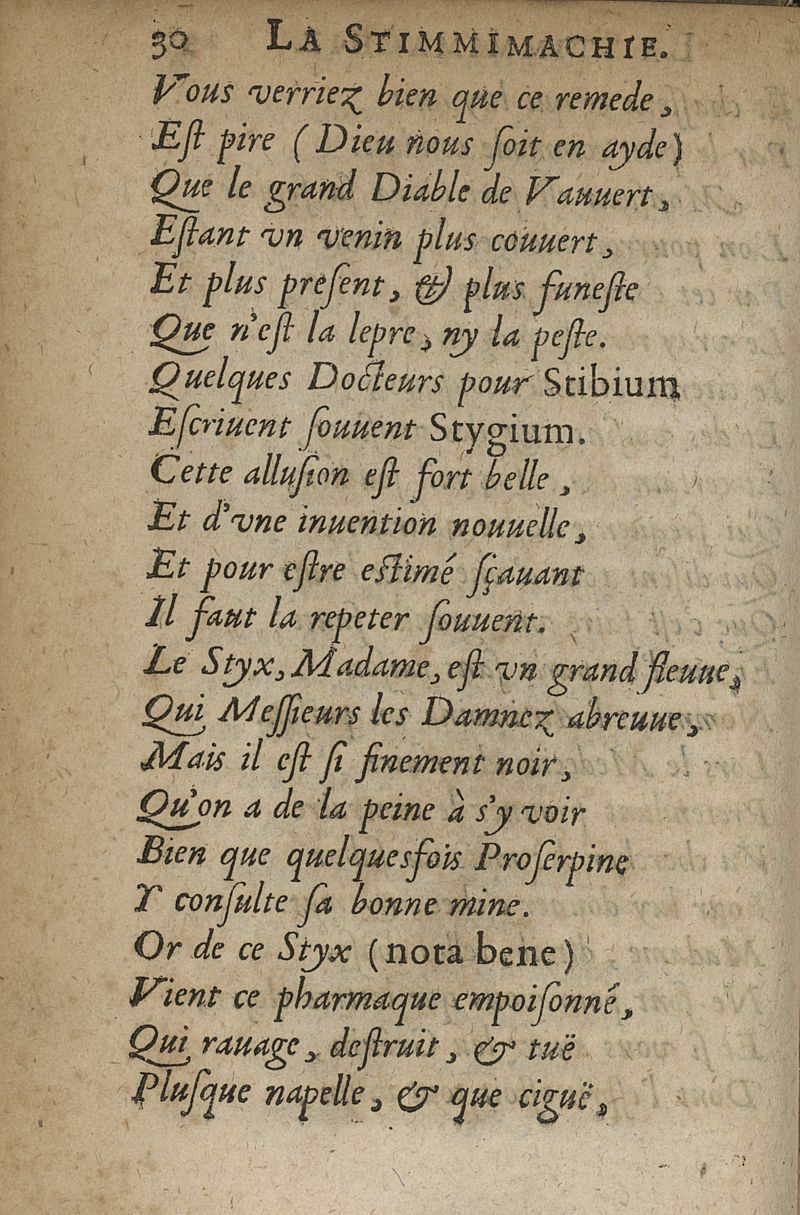 30 LA STIMMIMACHIE.
Vous verriez bien que ce remede,
Eſt pire (Dieu nous ſoit en ayde)
Que le grand Diable de Vauuert,
Eſtant vn venin plus couuert,
Et plus preſent, & plus funeſte
Que n'eſt la lepre, ny la peſte.
Quelques Docteurs pour Stibium
Eſcriuent ſouuent Stygium.
Cette alluſion eſt fort belle,
Et d'vne inuention nouuelle,
Et pour eſtre eſtimé ſçauant
Il faut la repeter ſouuent.
Le Styx, Madame, eſt vn grand fleuue,
Qui Meſſieurs les Damnez abreuue,
Mais il eſt ſi finement noir,
Qu'on a de la peine à s'y voir
Bien que quelquesfois Proſerpine
Y conſulte ſa bonne mine.
Or de ce Styx (nota bene)
Vient ce pharmaque empoiſonné,
Qui rauage, deſtruit, & tuë
Pluſque napelle, & que ciguë,